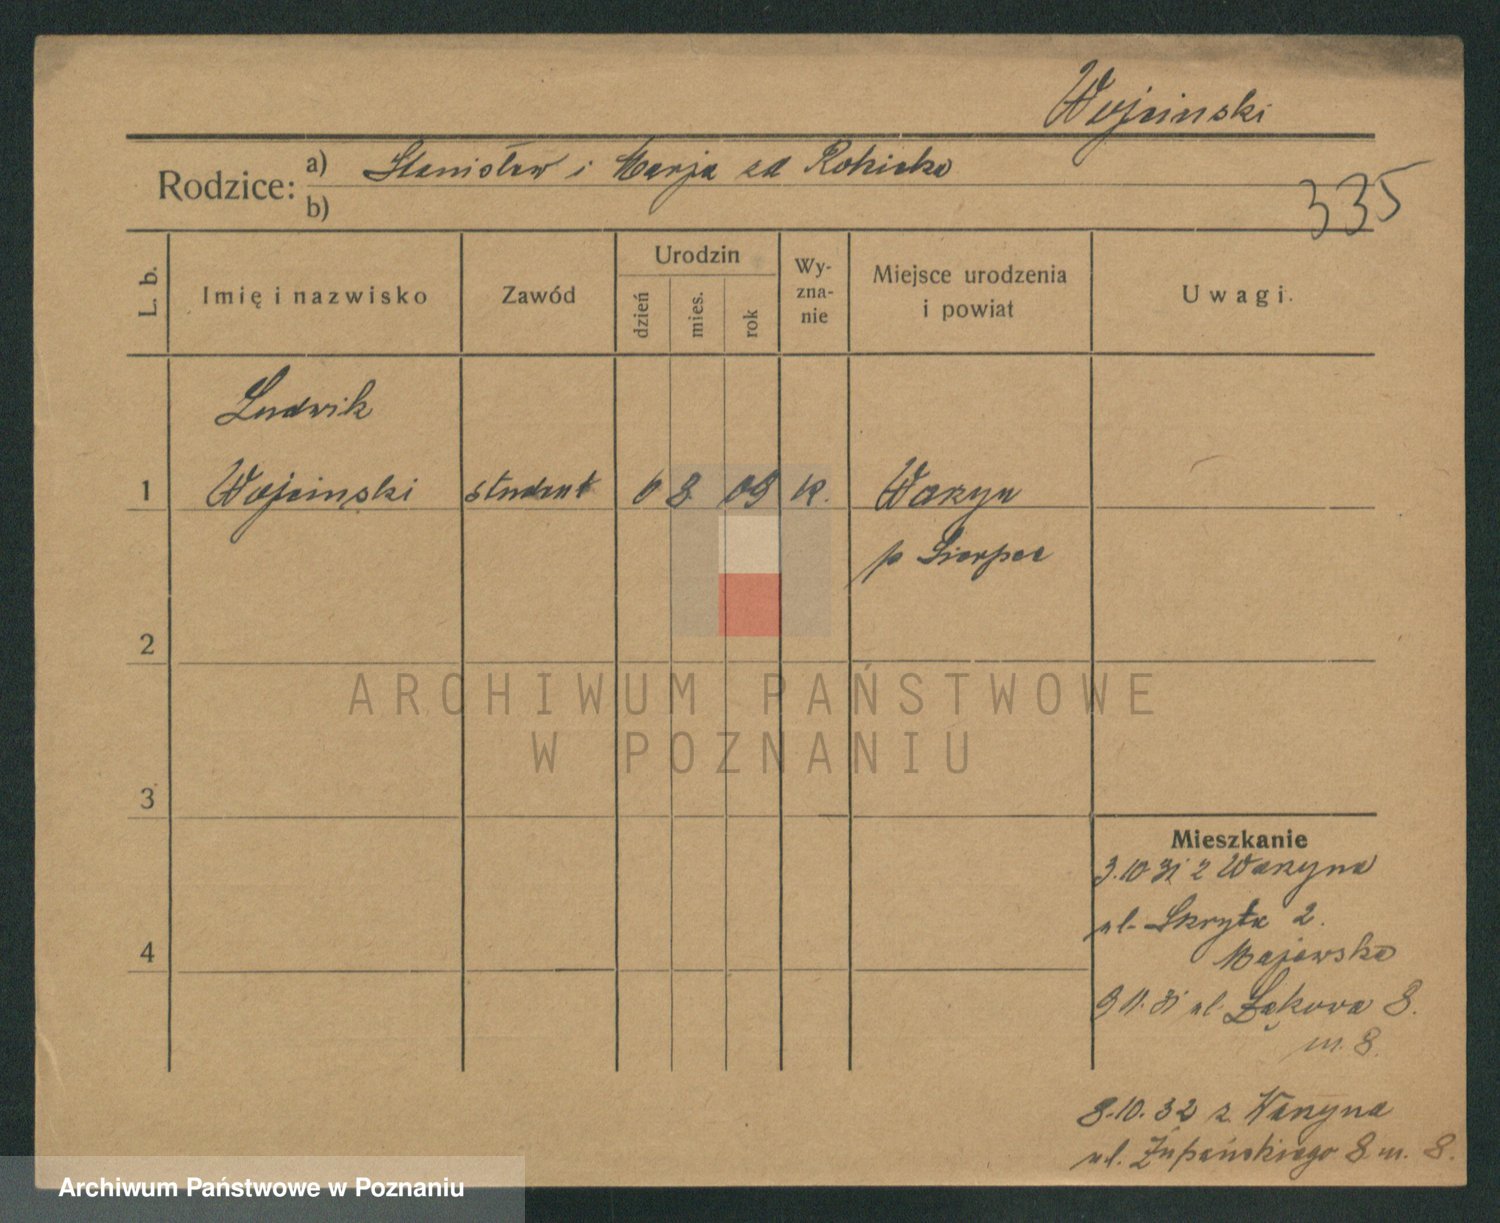 Wojcinski
Rodzice: a) Stanisław i Marja zd Rokicka
b)
335
L. b.
Imię i nazwisko
Zawód
Urodzin
dzień
mies.
rok
Wy-
zna-
nie
Miejsce urodzenia
i powiat
Uwagi.
Ludwik
1 Wojcinski student 6 8 09 k.
p Sierpec
2
ARCHIWUM PAŃSTWOWE
W POZNANIU
3
Mieszkanie
3.10 31 z
ul. Skryta 2.
Majewska
9 11. 31 ul. Łąkowa 8.
m. 8.
4
8.10.32 z
ul. Żupańskiego 8 m. 8.
Archiwum Państwowe w Poznaniu